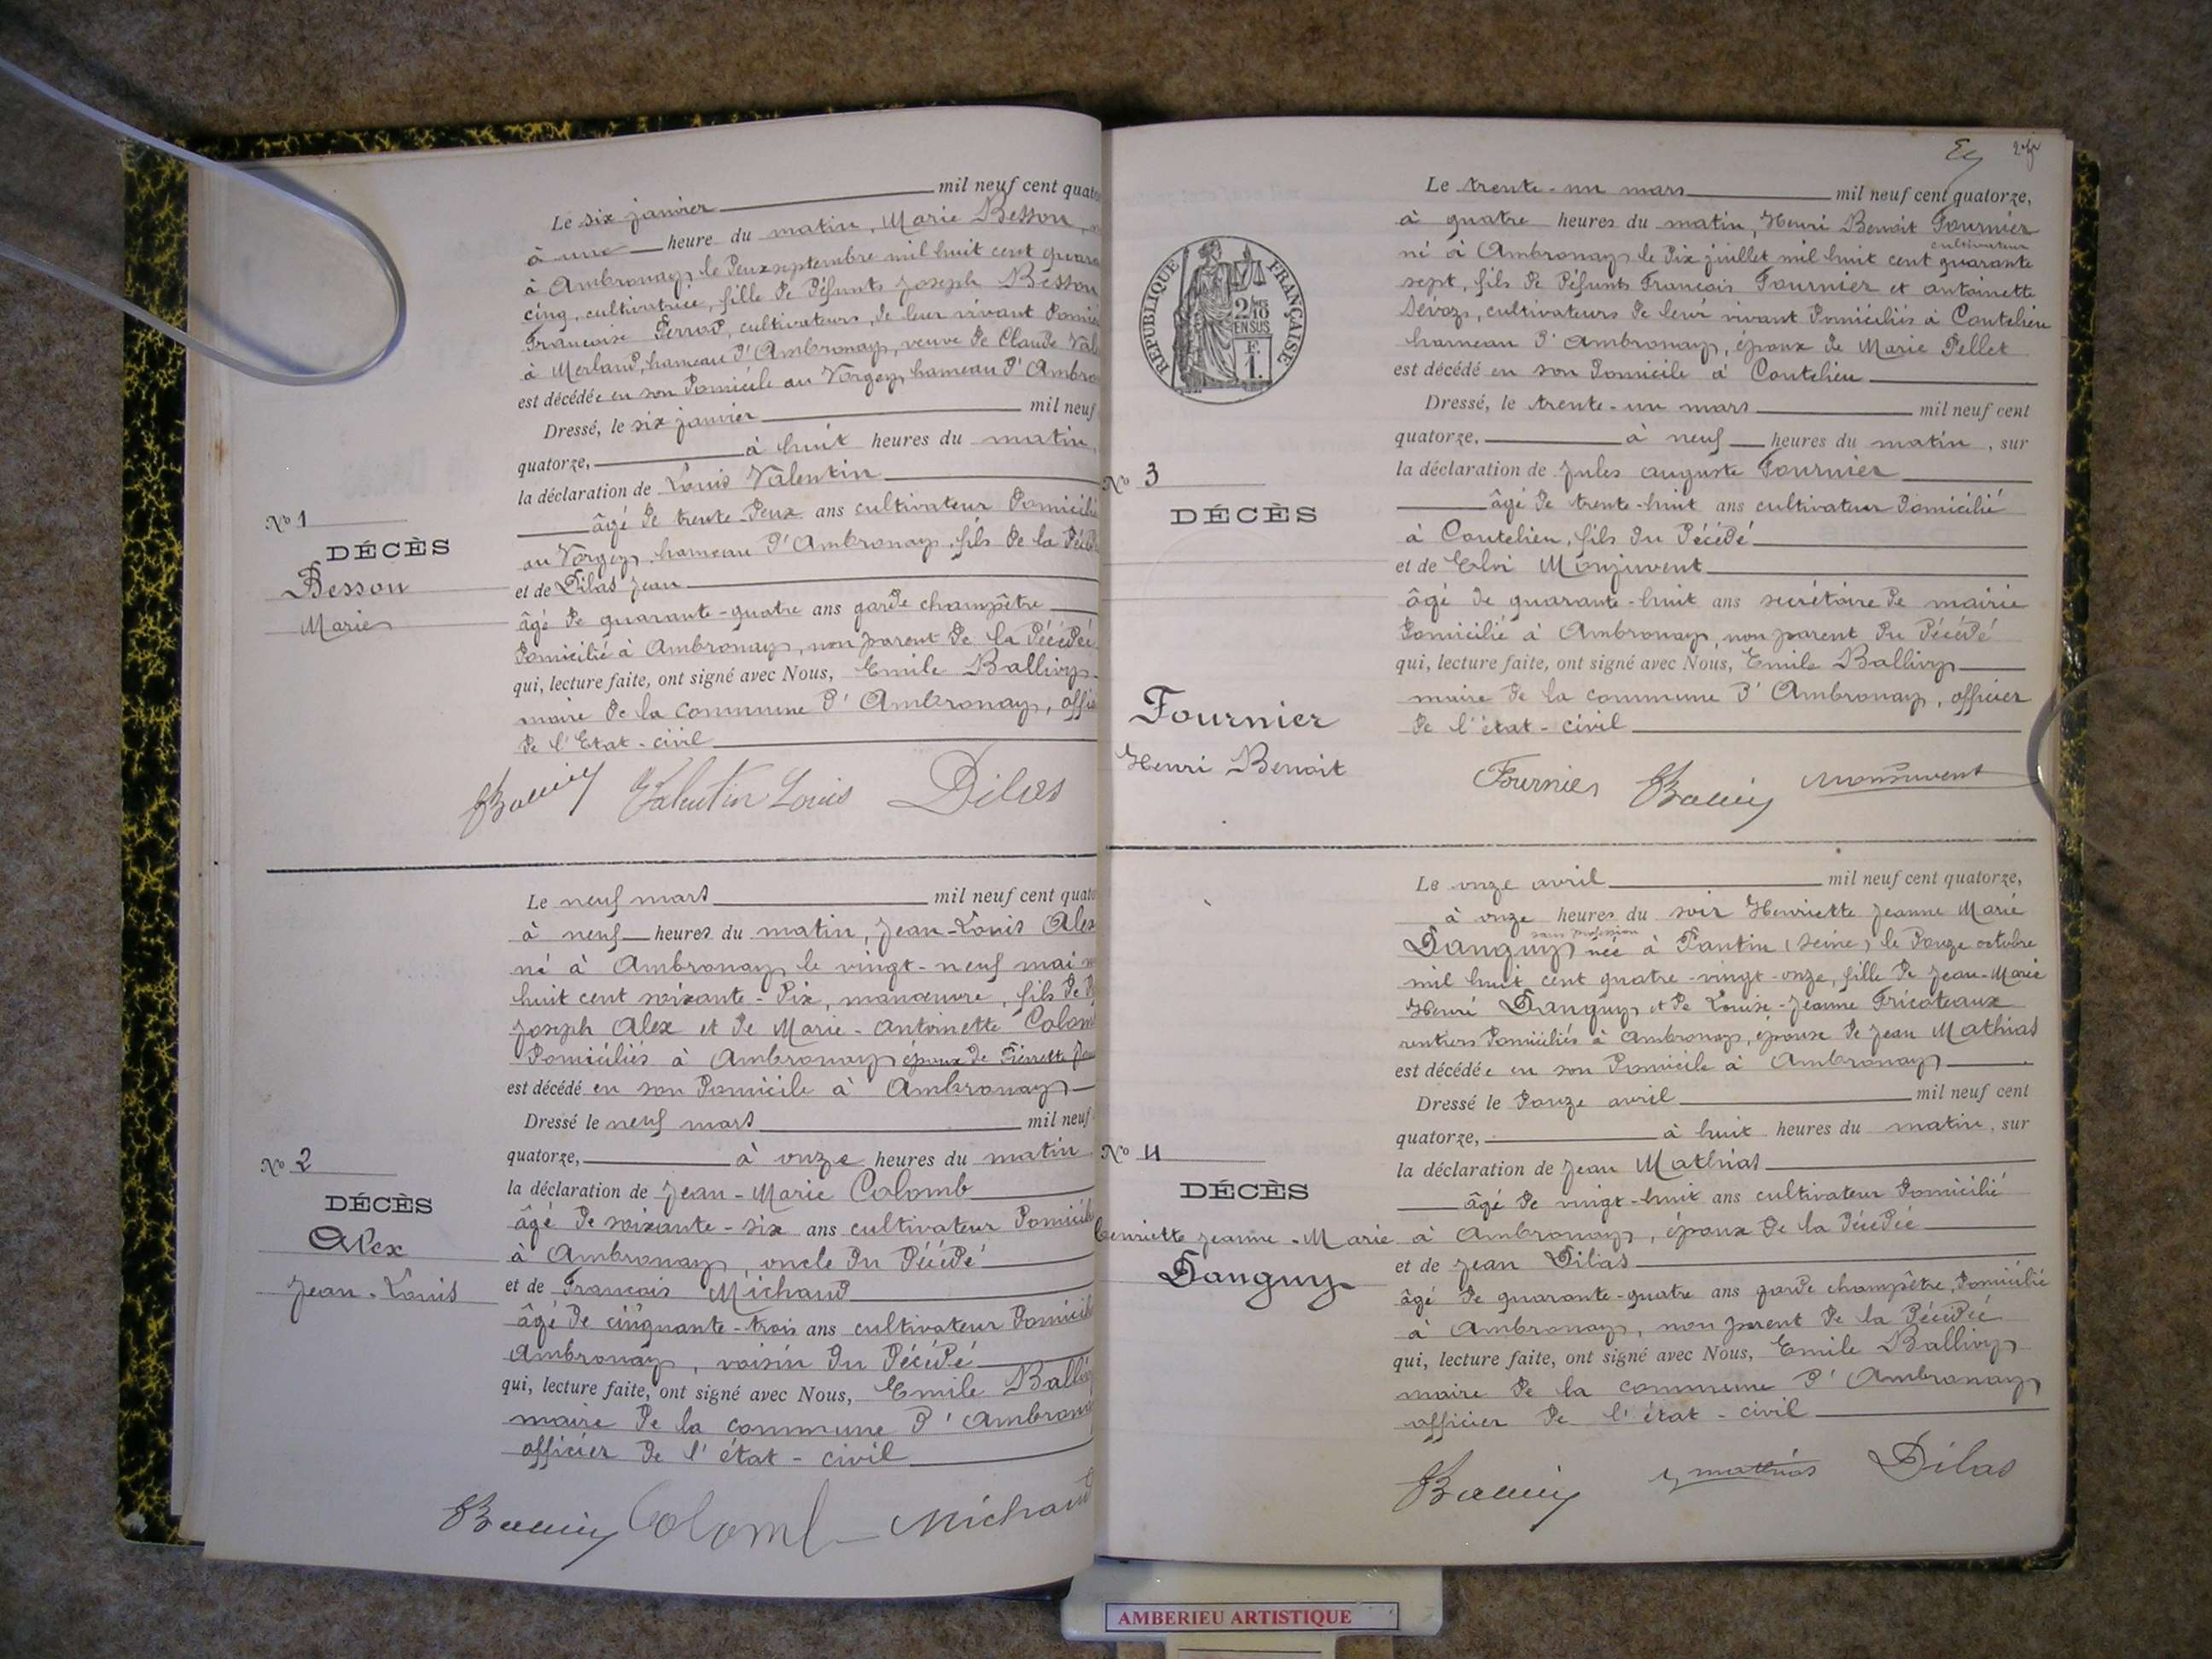 Le six janvier mil neuf cent quato
à une heure du matin, Marie Besson,
à Ambronay, le deux septembre mil huit cent quara
cinq, cultivatrice, fille de défunts Joseph Besson
Françoise Perrod, cultivateurs, de leur vivant domici
à Merland, hameau d'Ambronay, veuve de Claude Val
est décédée en son domicile au Vorgey, hameau d'Ambro
Dressé, le six janvier mil neuf
quatorze, à huit heures du matin,
la déclaration de Louis Valentin
âgé de trente-deux ans cultivateur domicilié
au Vorgey, hameau d'Ambronay, fils de la décéd
et de Dilas Jean
âgé de quarante-quatre ans garde champêtre
domicilié à Ambronay, non parent de la décédée
qui, lecture faite, ont signé avec Nous, Emile Ballivy
maire de la commune d'Ambronay, offic
de l'Etat-civil
Nº 1
DÉCÈS
Besson
Marie
Valentin Louis Dilas
Le neuf mars mil neuf cent quato
à neuf heures du matin, Jean-Louis Alex
né à Ambronay le vingt-neuf mai
huit cent soixante-dix, manœuvre, fils de
Joseph Alex et de Marie-Antoinette Colom
domiciliés à Ambronay époux de Pierrette
est décédé en son domicile à Ambronay
Dressé le neuf mars mil neuf
quatorze, à onze heures du matin
la déclaration de Jean-Marie Colomb
âgé de soixante-six ans cultivateur domicili
à Ambronay, oncle du décédé
et de François Michaud
âgé de cinquante-trois ans cultivateur domicili
Ambronay, voisin du décédé
qui, lecture faite, ont signé avec Nous, Emile Balliv
maire de la commune d'Ambrona
officier de l'état-civil
Nº 2
DÉCÈS
Alex
Jean-Louis
Colomb Michaud
RÉPUBLIQUE FRANÇAISE
2/10
EN SUS
F.
1.
Le trente-un mars mil neuf cent quatorze,
à quatre heures du matin, Henri Benoit Fournier
cultivateur
né à Ambronay le dix juillet mil huit cent quarante
sept, fils de défunts François Fournier et Antoinette
Dévozs, cultivateurs de leur vivant domiciliés à Coutelieu
hameau d'Ambronay, époux de Marie Pellet
est décédé en son domicile à Coutelieu
Dressé, le trente-un mars mil neuf cent
quatorze, à neuf heures du matin, sur
la déclaration de Jules Auguste Fournier
âgé de trente-huit ans cultivateur domicilié
à Coutelieu, fils du décédé
et de Eloi Monjuvent
âgé de quarante-huit ans secrétaire de mairie
domicilié à Ambronay, non parent du décédé
qui, lecture faite, ont signé avec Nous, Emile Ballivy
maire de la commune d'Ambronay, officier
de l'état-civil
Nº 3
DÉCÈS
Fournier
Henri Benoit
Fournier Monjuvent
Le onze avril mil neuf cent quatorze,
à onze heures du soir Henriette Jeanne Marie
sans profession
Tanguy née à Pantin (Seine) le douze octobre
mil huit cent quatre-vingt-onze, fille de Jean-Marie
Henri Tanguy et de Louise-Jeanne Fricoteaux
rentiers domiciliés à Ambronay, épouse de Jean Mathias
est décédée en son domicile à Ambronay
Dressé le douze avril mil neuf cent
quatorze, à huit heures du matin, sur
la déclaration de Jean Mathias
âgé de vingt-huit ans cultivateur domicilié
à Ambronay, époux de la décédée
et de Jean Dilas
âgé de quarante-quatre ans garde champêtre, domicilié
à Ambronay, non parent de la décédée
qui, lecture faite, ont signé avec Nous, Emile Ballivy
maire de la commune d'Ambronay
officier de l'état-civil
Nº 4
DÉCÈS
Henriette Jeanne-Marie
Tanguy
Mathias Dilas
AMBERIEU ARTISTIQUE